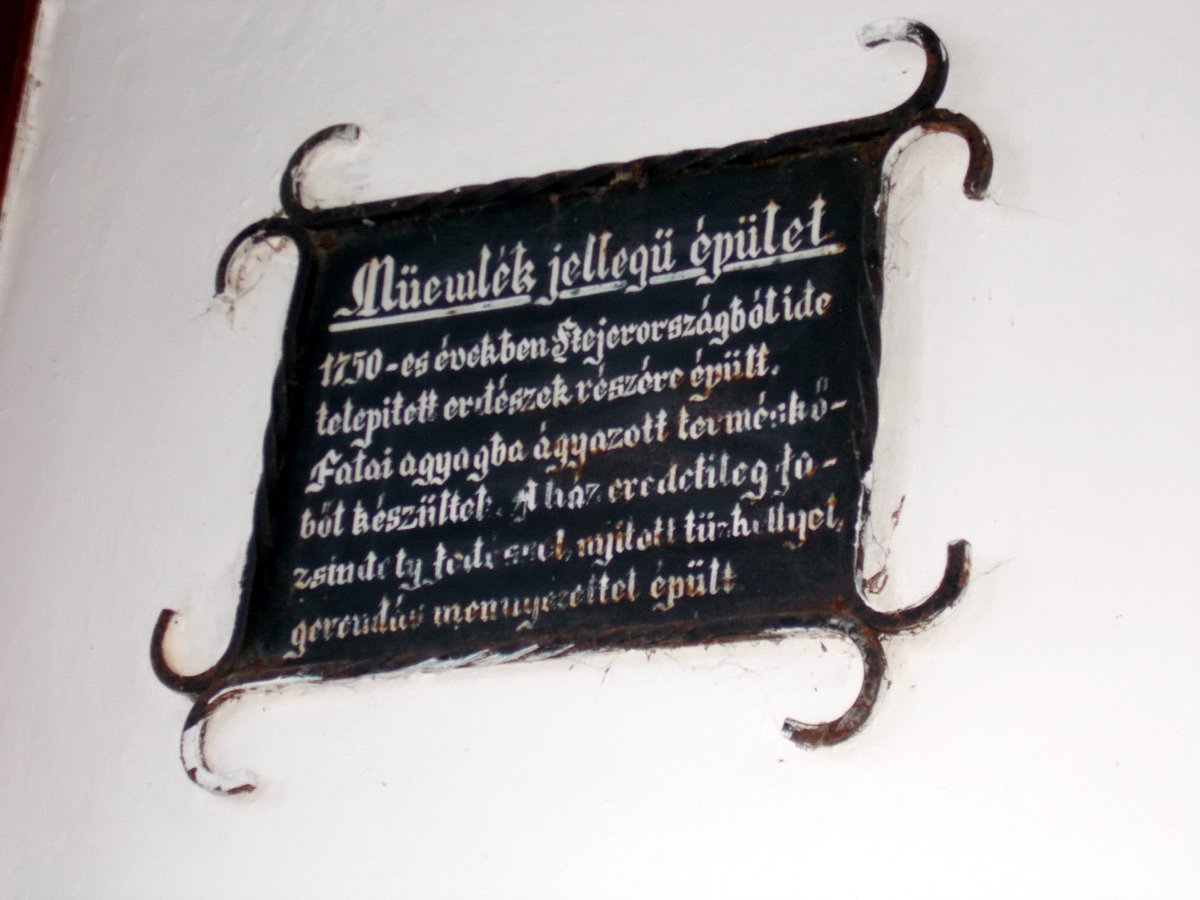 Müemlék jellegü épület
1750-es években Stejerországból ide
telepitett erdészek részére épült.
Falai agyagba ágyazott terméskő-
ből készültek. A ház eredetileg fa-
zsindely fedéssel, nyitott tüzhellyel,
gerendás mennyezettel épült.